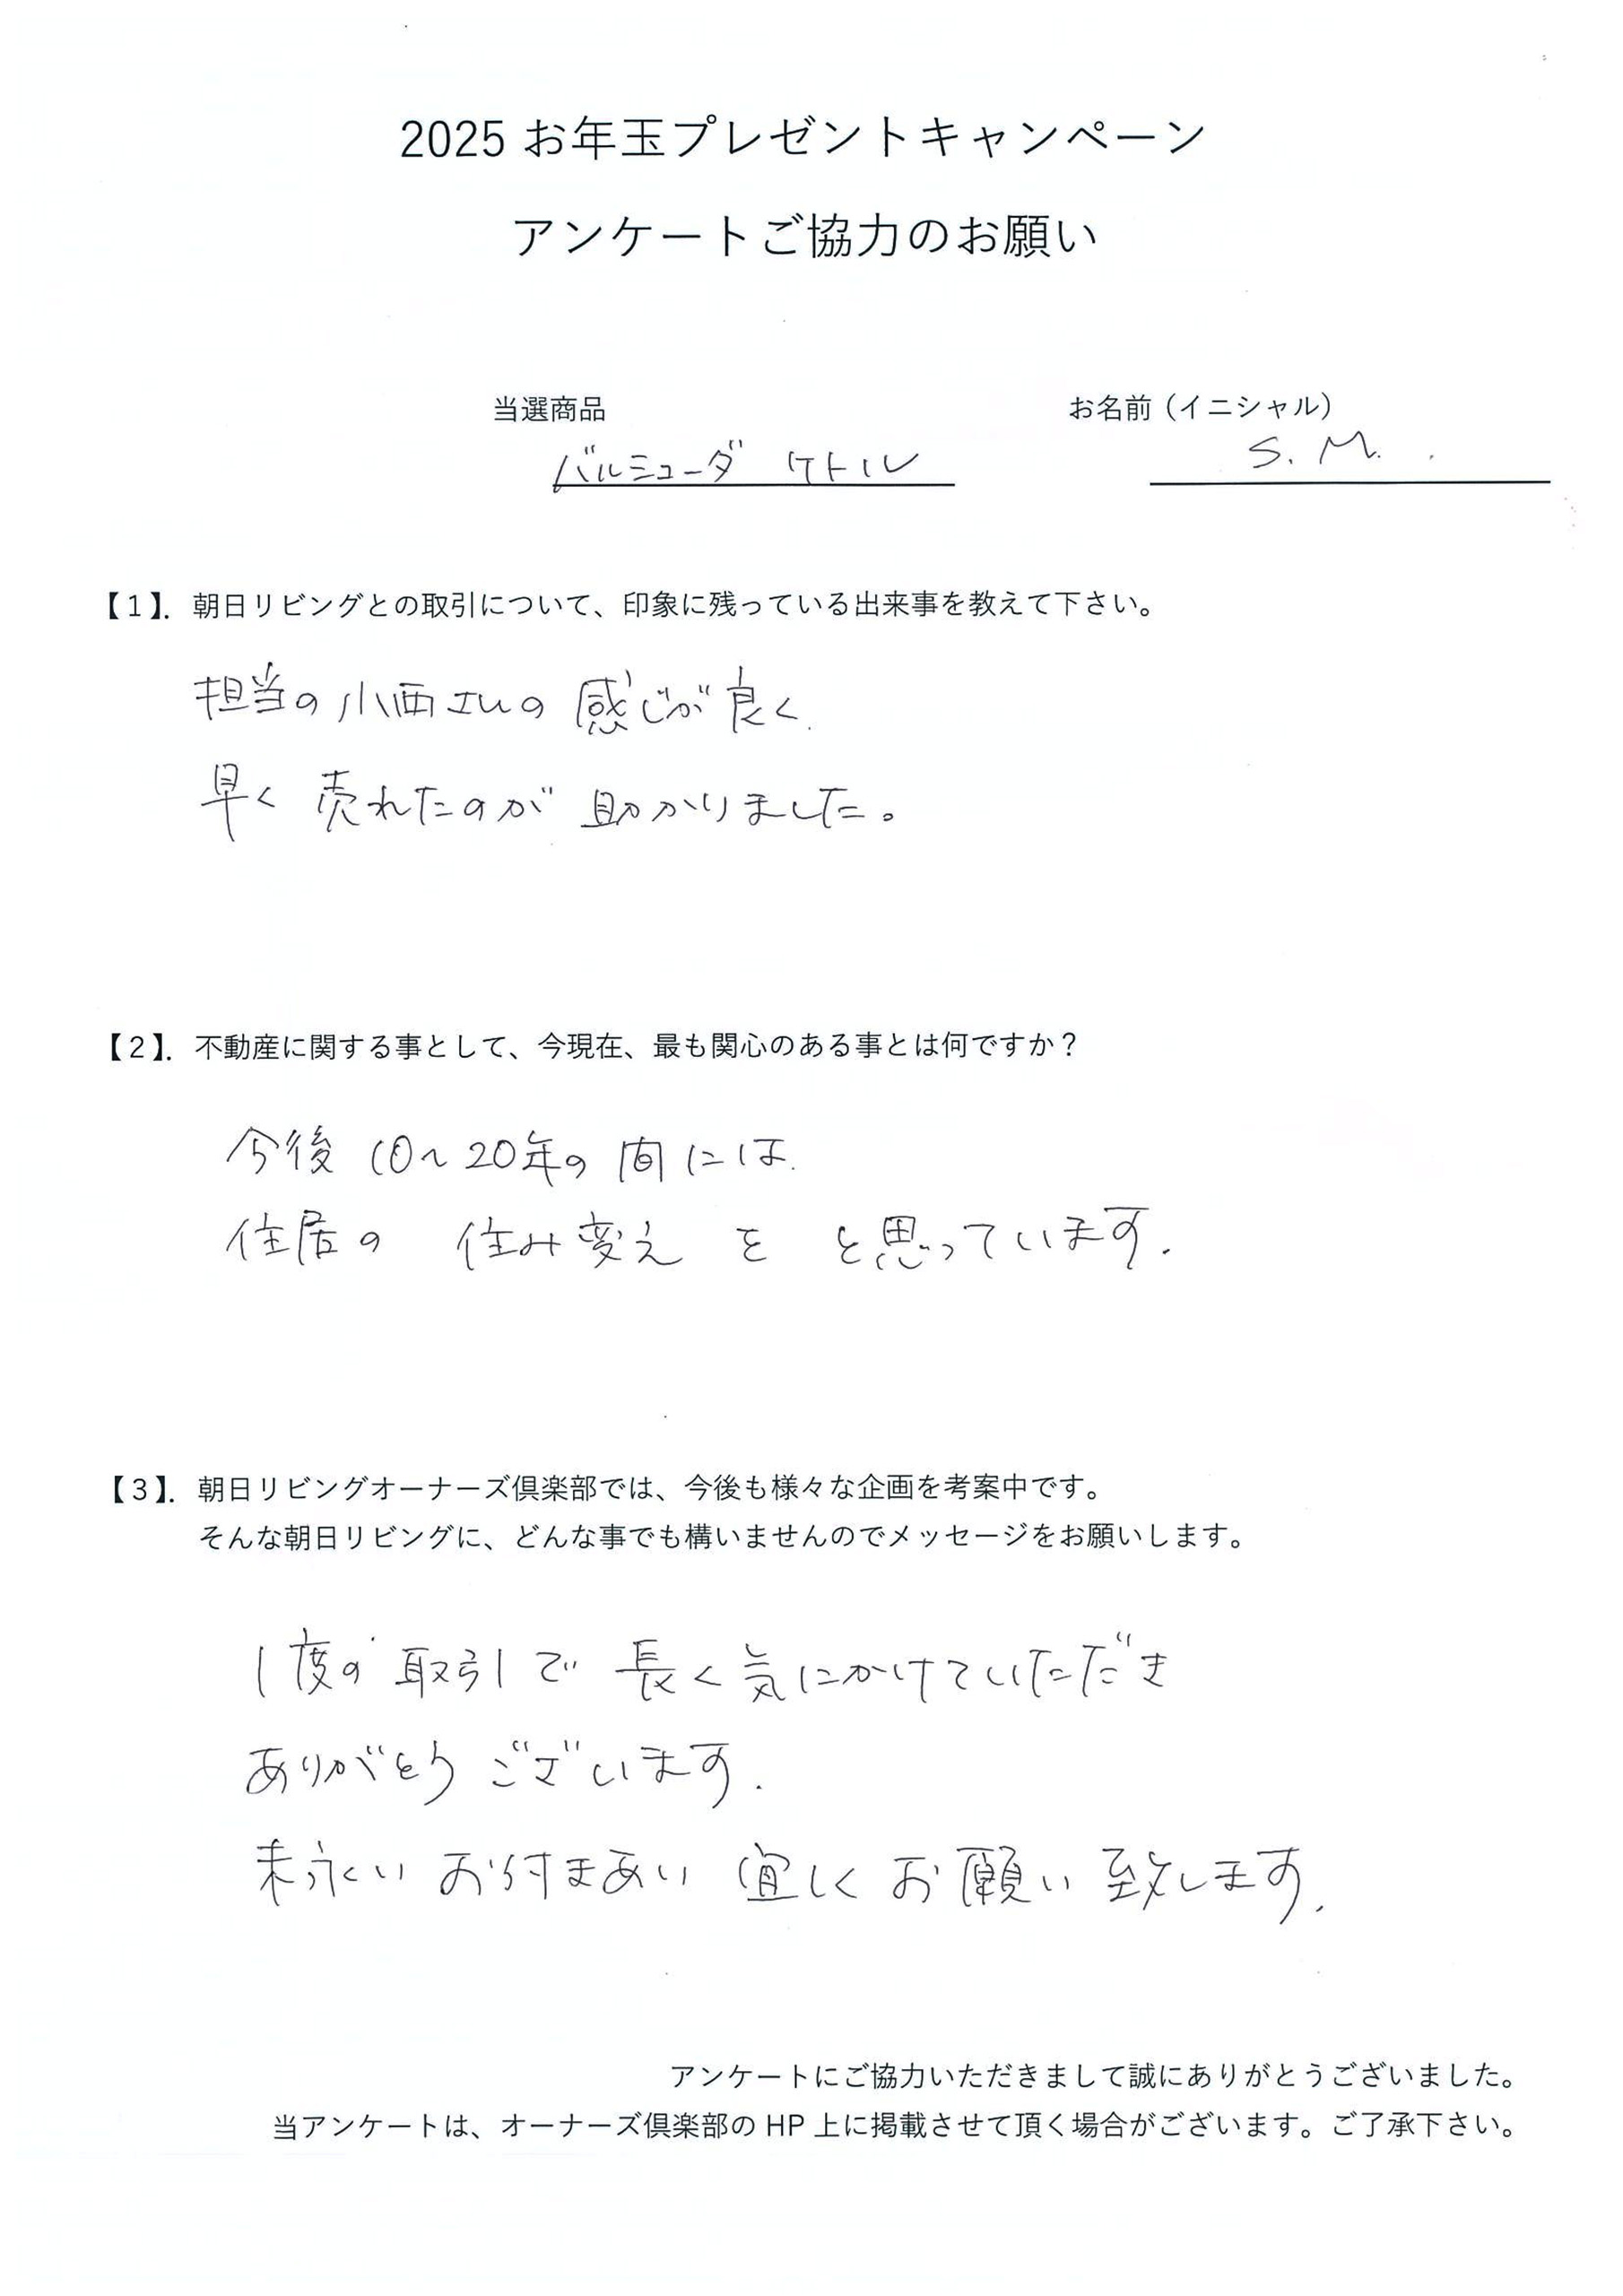 2025 お年玉プレゼントキャンペーン
アンケートご協力のお願い
当選商品
お名前（イニシャル）
バルミューダ ケトル
S. M.
【1】．朝日リビングとの取引について、印象に残っている出来事を教えて下さい。
担当の小西さんの 感じが良く
早く 売れたのが 助かりました。
【2】．不動産に関する事として、今現在、最も関心のある事とは何ですか？
今後 10〜20年の 間には
住居の 住み変え を と思っています.
【3】．朝日リビングオーナーズ倶楽部では、今後も様々な企画を考案中です。
そんな朝日リビングに、どんな事でも構いませんのでメッセージをお願いします。
1度の 取引で 長く気にかけていただき
ありがとう ございます.
末永い お付きあい 宜しく お願い 致します.
アンケートにご協力いただきまして誠にありがとうございました。
当アンケートは、オーナーズ倶楽部の HP 上に掲載させて頂く場合がございます。ご了承下さい。